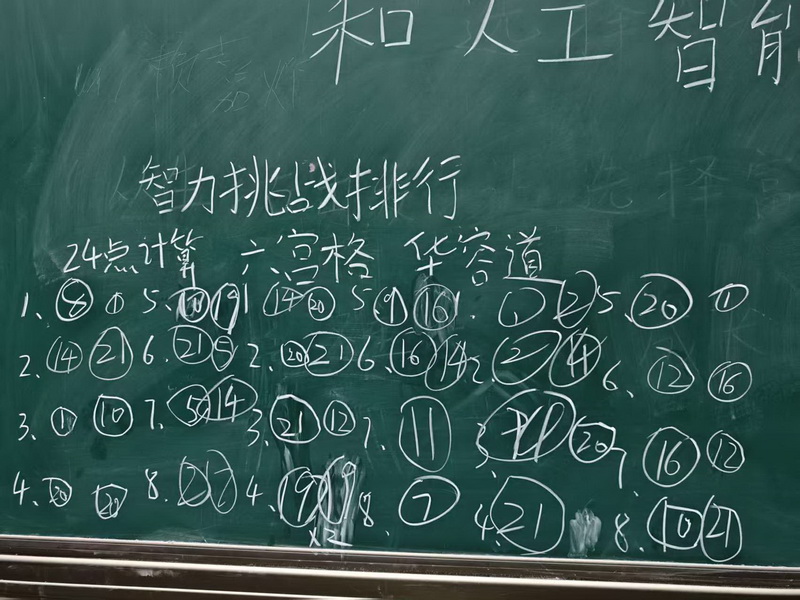 和人工智能
智力挑战排行
24点计算 六宫格 华容道
1、⑧ ① 5、⑩ ⑲ 1 ⑭ ⑳ 5 ⑨ ⑯ 1. ① ② 5、⑳ ①
2、⑭ ㉑ 6. ㉑ ⑤ 2. ⑳ ㉑ 6、⑯ ⑭ 2、② ④ 6、⑫ ⑯
3、① ⑩ 7. ⑤ ⑭ 3、㉑ ⑫ 7、⑪ 3、⑳ 7、⑯ ⑫
4、⑳ ⑳ 8. ② 4、⑲ ⑲ 8、⑦ 4、㉑ 8、⑩ ㉑
x2